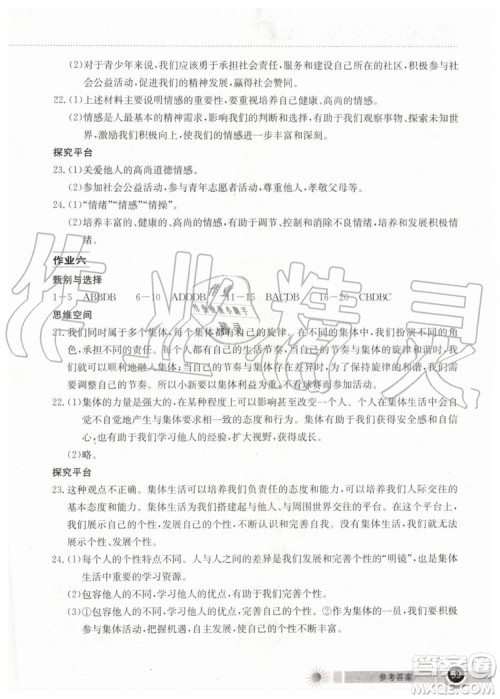 (2)对于青少年来说,我们应该勇于承担社会责任,服务和奉献自己所在的社区,积极参
与社会公益活动,促进我们的精神发展,获得社会赞同。
22.(1)上述材料主要说明情感的重要性,要重视培养自己健康、高尚的情感。
(2)情感是人最基本的精神需求,影响我们的判断和选择,有助于我们观察事物、探知世
界,驱使我们积极向上,使我们的情感进一步丰富和深刻。
探究平台
23.(1)关爱他人的高尚道德情感。
(2)参加社会公益活动,参与青年志愿者活动,孝敬父母等。
24.(1)“情绪”“情感”“情操”。
(2)培养丰富的、健康的、高尚的情感,有助于
续发展。
作业六
甄别与选择
1-5 ABBDB 6-10 11-15 BACDB 16-20 CBDBC
思维空间
21.我们同时属于多个集体,每个集体都有自己的旋律,我们在不同集体中扮演不同的角
色,承担不同的责任。每个人都有自己的生活节奏,当自己的节奏与集体的旋律和谐
时,我们就可以顺利地融入集体;当我们与集体存在差异时,为了保持旋律的和谐,我们
需要调整自己的节奏。
22.(1)集体的力量是强大的,在集体中,我们更容易获得安全感和自信心;集体的力量能不
知不觉地产生与集体要求相一致的态度和行为,有助于我们完善自己,获得安全感和自信
心,有助于我们学习他人的经验,扩大视野,获得不断成长。
(2)略。
探究平台
23.这种观点不正确。集体生活可以培养我们负责任的态度和能力,可以培养我们人际交往的
基本态度和能力。我们在集体生活中搭建起与他人、与周围世界的联系。在这个平台上,
我们展示自己的个性,发展自己的个性,不断认识和完善自我。所以,我们不能没有集
体生活。
24.(1)每个人的个性特点不同。人与人之间的差异是我们完善个性的“明镜”,也是集体
生活中重要的学习资源。
(2)包容他人的不同,学习他人的优点,有助于我们不断完善自己的个性。
(3)①包容他人的不同,学习他人的优点。②为集体做一些力所能及的事情,主动参与集
体建设。
参考答案